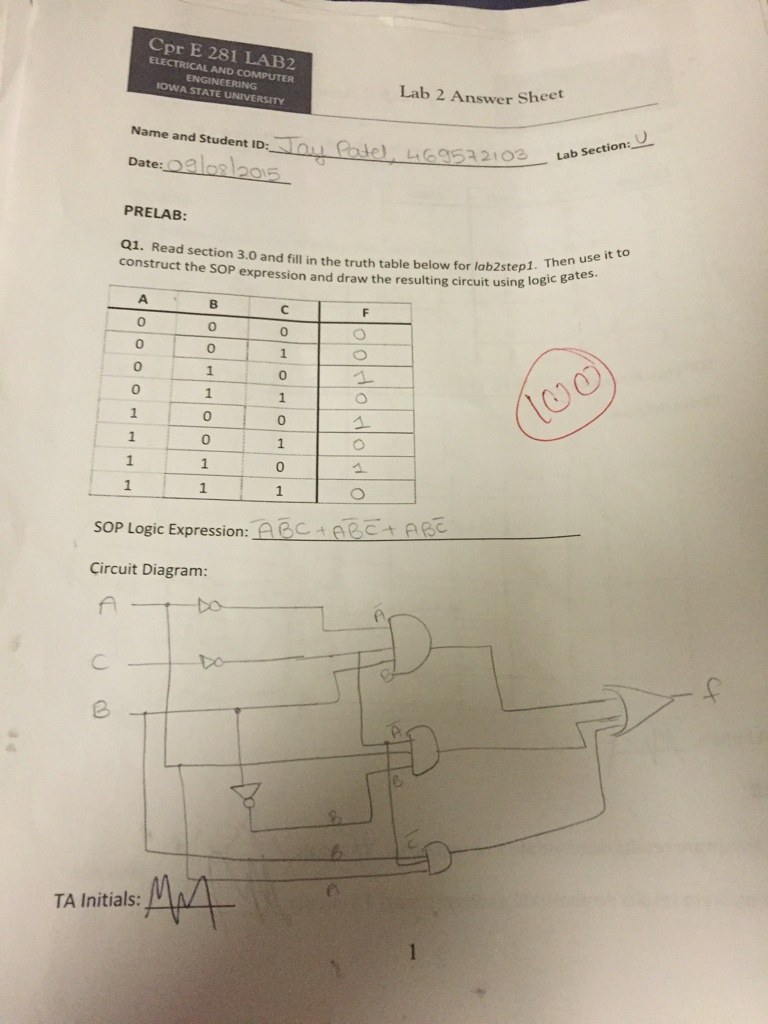 Cpr E 281 LAB2
ELECTRICAL AND COMPUTER
ENGINEERING
IOWA STATE UNIVERSITY
Lab 2 Answer Sheet
Name and Student ID: Jay Patel, 469572103 Lab Section: U
Date: 09/08/2015
PRELAB:
Q1. Read section 3.0 and fill in the truth table below for lab2step1. Then use it to
construct the SOP expression and draw the resulting circuit using logic gates.
A B C F
0 0 0 0
0 0 1 0
0 1 0 1
0 1 1 0
1 0 0 1
1 0 1 0
1 1 0 1
1 1 1 0
100
SOP Logic Expression: A̅B̅C + AB̅C̅ + ABC̅
Circuit Diagram:
A A̅
C
B B
f
A̅
B
B
C̅
B
A
TA Initials: MM
1